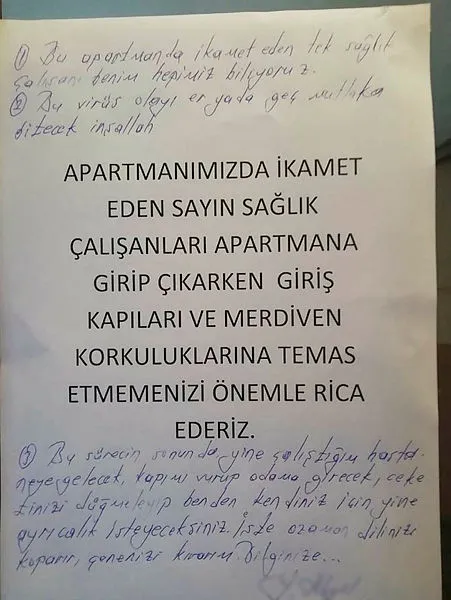 ① Bu apartmanda ikamet eden tek sağlık
çalışanı benim hepimiz biliyoruz.
② Bu virüs olayı er yada geç mutlaka
bitecek inşallah
APARTMANIMIZDA İKAMET
EDEN SAYIN SAĞLIK
ÇALIŞANLARI APARTMANA
GİRİP ÇIKARKEN GİRİŞ
KAPILARI VE MERDİVEN
KORKULUKLARINA TEMAS
ETMEMENİZİ ÖNEMLE RİCA
EDERİZ.
③ Bu sürecin sonunda yine çalıştığım hasta-
neye gelecek, kapımı vurup odama girecek, ceke-
tinizi düğmeleyip benden kendiniz için yine
ayrıcalık isteyeceksiniz. İşte o zaman dilinizi
koparır, çenenizi kırarım. Bilginize...